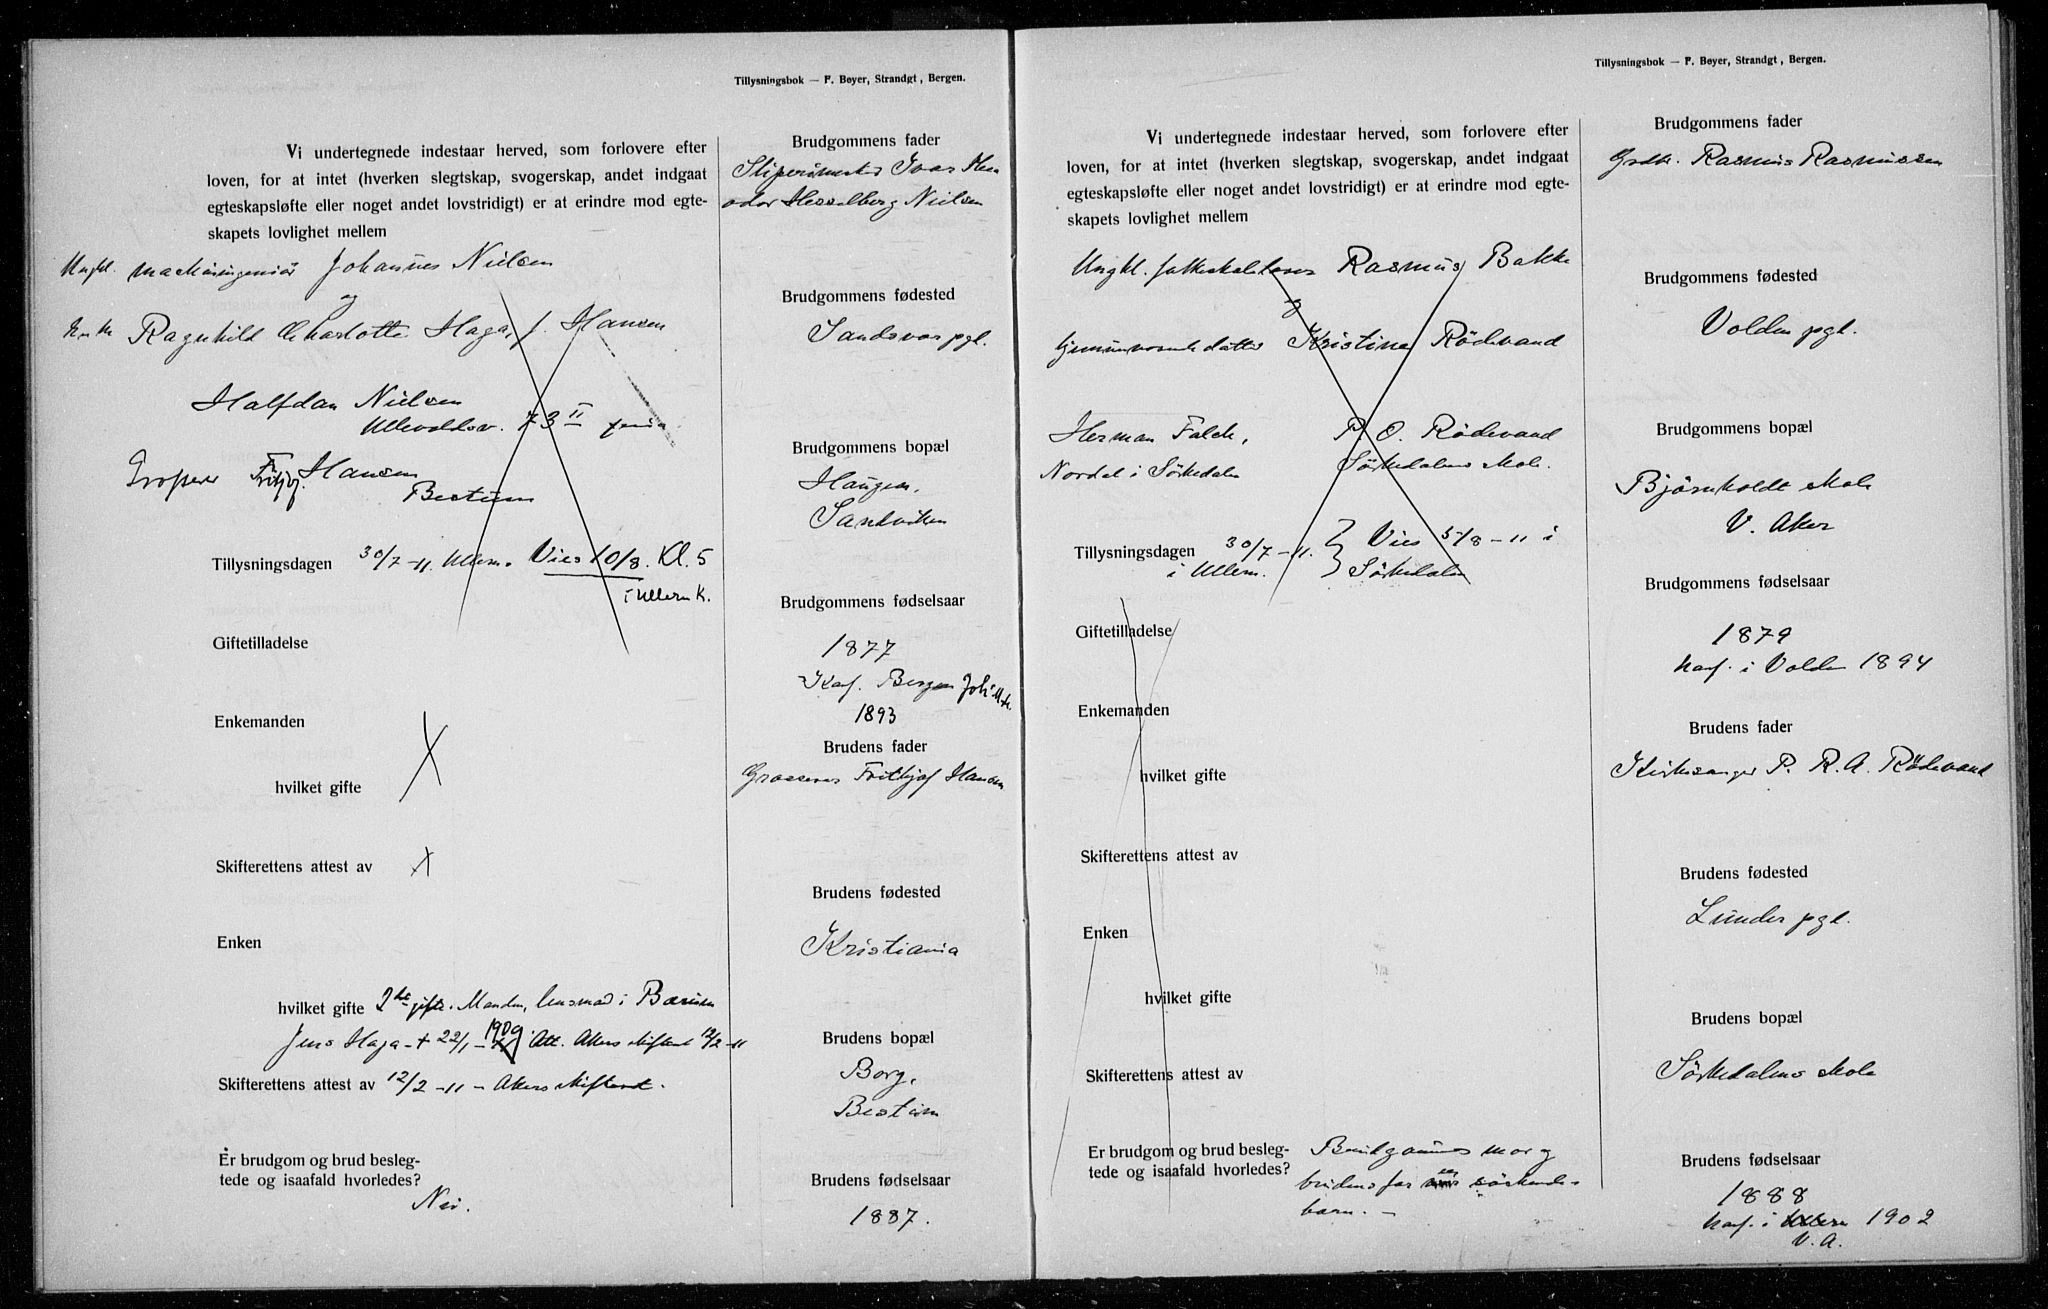 Tillysningsbok — F. Beyer, Strandgt, Bergen.
Vi undertegnede indestaar herved, som forlovere efter
loven, for at intet (hverken slegtskap, svogerskap, andet indgaat
egteskapsløfte eller noget andet lovstridigt) er at erindre mod egte-
skapets lovlighet mellem
Ungkl. maskiningeniør Johannes Nielsen
og
Enke Ragnhild Charlotte Haga, f. Hansen
Halfdan Nielsen
Ullevoldsv. 73 II
Grosserer Fritjof Hansen
Bestum
Tillysningsdagen 30/7 -11. Ullern. Vies 10/8. Kl. 5
i Ullern K.
Giftetilladelse
Enkemanden
hvilket gifte
Skifterettens attest av
Enken
hvilket gifte 2det gifte. Manden, lensmand i Bærum
Jens Haga - + 22/1 - 1909. Att. Akers skifteret 12/2 -11
Skifterettens attest av 12/2 -11 - Akers skifteret.
Er brudgom og brud besleg-
tede og isaafald hvorledes?
Nei.
Brudgommens fader
Ivar
Hesselberg Nielsen
Brudgommens fødested
Sandsvær pgl.
Brudgommens bopæl
Haugen,
Sandviken
Brudgommens fødselsaar
1877
Konf. Bergen Joh.
1893
Brudens fader
Grosserer Frithjof Hansen
Brudens fødested
Kristiania
Brudens bopæl
Borg,
Bestum
Brudens fødselsaar
1887.
Tillysningsbok — F. Beyer, Strandgt, Bergen.
Vi undertegnede indestaar herved, som forlovere efter
loven, for at intet (hverken slegtskap, svogerskap, andet indgaat
egteskapsløfte eller noget andet lovstridigt) er at erindre mod egte-
skapets lovlighet mellem
Ungkl. folkeskolelærer Rasmus Bakke
og
hjemmeværende datter Kristine Rödevand
Herman Falck, P. O. Rödevand
Nordal i Sörkedalen Sörkedalens skole.
Tillysningsdagen 30/7 -11. } Vies 5/8 -11 i
i Ullern. } Sörkedalen
Giftetilladelse
Enkemanden
hvilket gifte
Skifterettens attest av
Enken
hvilket gifte
Skifterettens attest av
Er brudgom og brud besleg-
tede og isaafald hvorledes?
Brudgommens mor og
brudens far er söskende-
barn. -
Brudgommens fader
Grdbr. Rasmus Rasmussen
Brudgommens fødested
Volden pgl.
Brudgommens bopæl
Björnholdt skole
V. Aker
Brudgommens fødselsaar
1879
konf. i Volden 1894
Brudens fader
Kirkesanger P. R. A. Rödevand
Brudens fødested
Lunder pgl.
Brudens bopæl
Sörkedalens skole
Brudens fødselsaar
1888
konf. i Ullern 1902
V. A.